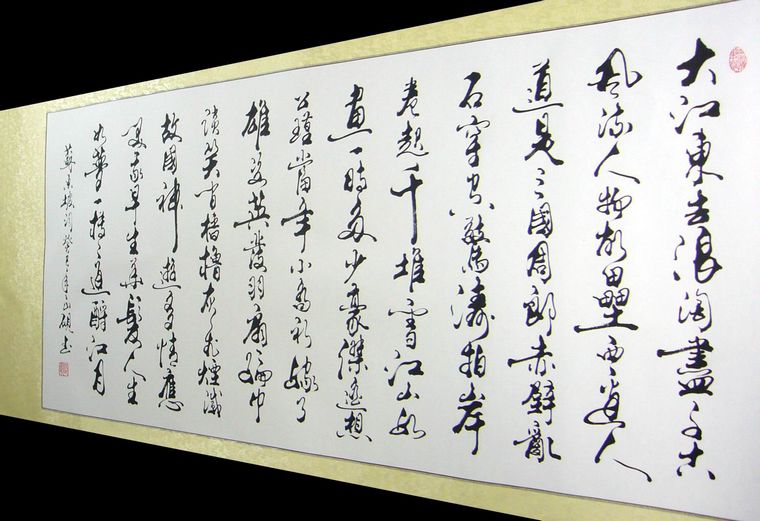 大江東去浪淘盡千古
風流人物故壘西邊人
道是三國周郎赤壁亂
石穿空驚濤拍岸
卷起千堆雪江山如
畫一時多少豪傑遙想
公瑾當年小喬初嫁了
雄姿英發羽扇綸巾
談笑間檣櫓灰飛煙滅
故國神遊多情應
笑我早生華髮人生
如夢一樽還酹江月
蘇東坡詞癸巳年 書